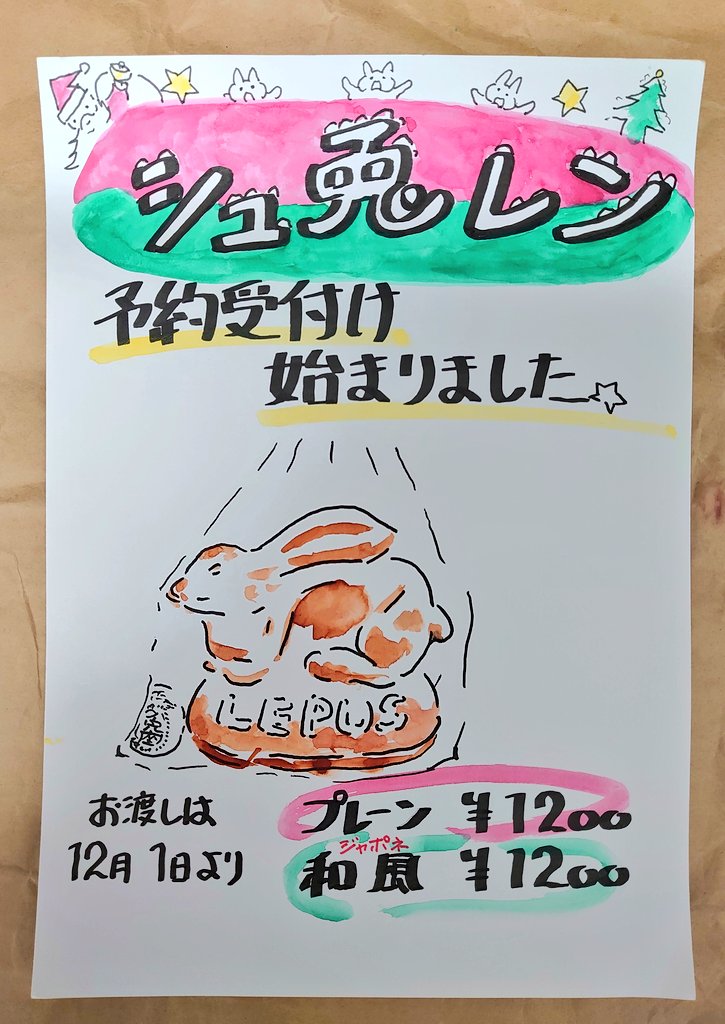 シュ兎レン
予約受付け
始まりました
LEPUS
お渡しは
12月1日より
プレーン ¥1200
ジャポネ
和風 ¥1200